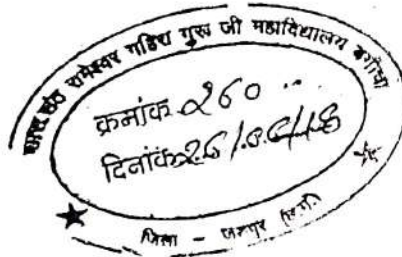 शास. संत रामेश्वर गहिरा गुरू जी महाविद्यालय बगीचा
क्रमांक 260
दिनांक
जिला - जशपुर (छ.ग.)